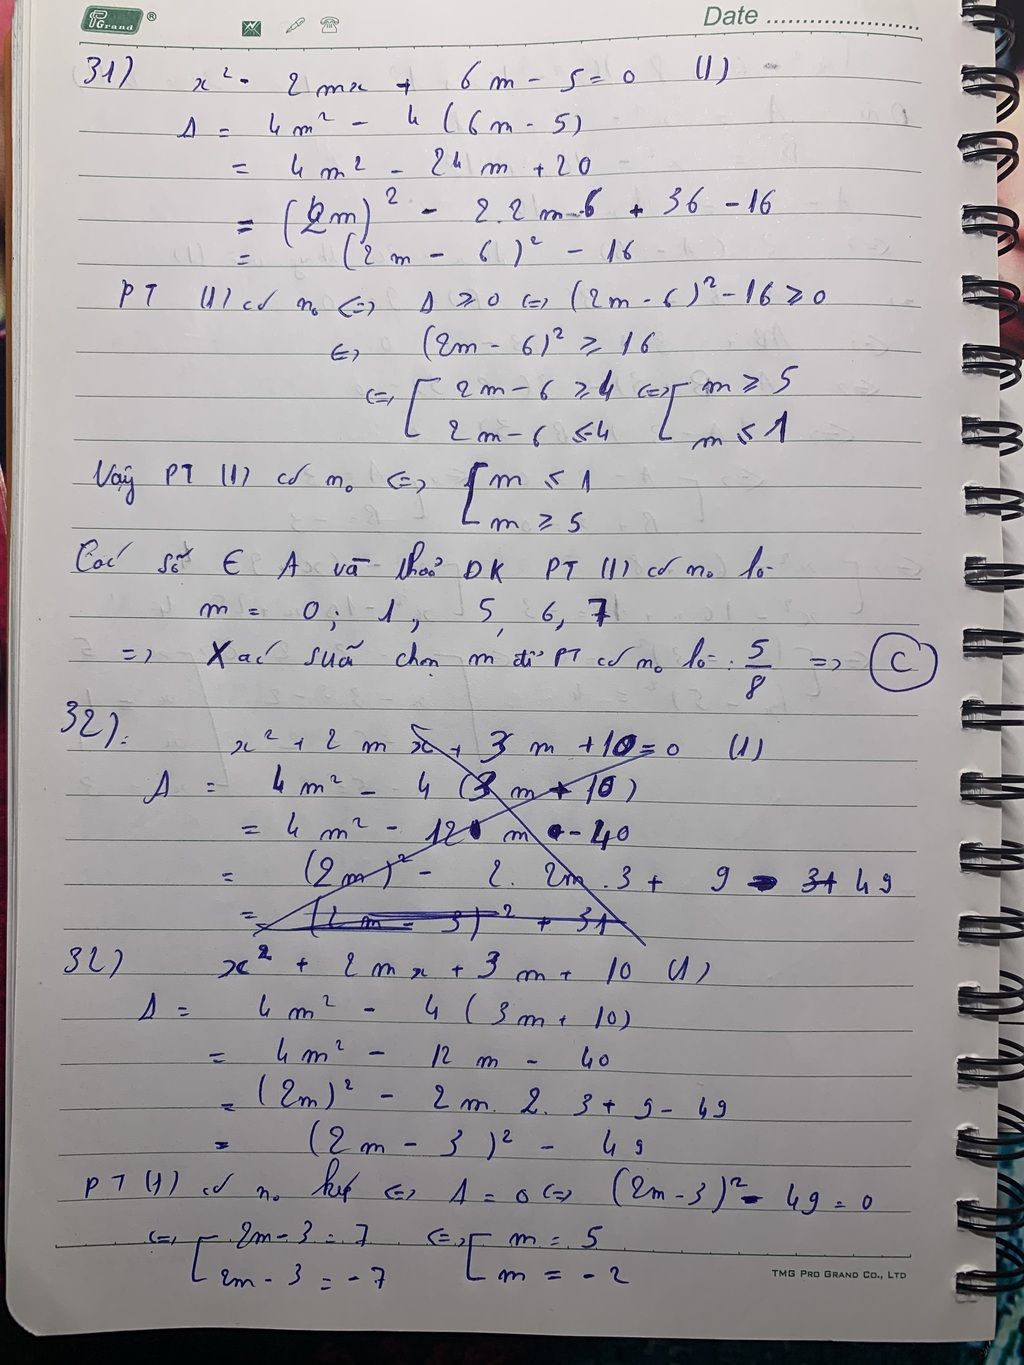 PGrand ®
Date
31) x² - 2mx + 6m - 5 = 0 (1)
Δ = 4m² - 4(6m - 5)
= 4m² - 24m + 20
= (2m)² - 2.2m.6 + 36 - 16
= (2m - 6)² - 16
PT (1) có n₀ <=> Δ ≥ 0 <=> (2m - 6)² - 16 ≥ 0
<=> (2m - 6)² ≥ 16
<=> [ 2m - 6 ≥ 4 <=> [ m ≥ 5
2m - 6 ≤ -4 m ≤ 1
Vậy PT (1) có n₀ <=> [ m ≤ 1
m ≥ 5
Các số ∈ A và thoả ĐK PT (1) có n₀ là
m = 0; 1, 5, 6, 7
=> Xác suấ chọn m để PT có n₀ là: 5/8 => C
32). x² + 2mx + 3m + 10 = 0 (1)
Δ = 4m² - 4(3m + 10)
= 4m² - 12m - 40
= (2m)² - 2. 2m .3 + 9 - 31 49
= (2m - 3)² + 31
32) x² + 2mx + 3m + 10 (1)
Δ = 4m² - 4(3m + 10)
= 4m² - 12m - 40
= (2m)² - 2m. 2. 3 + 9 - 49
= (2m - 3)² - 49
PT (1) có n₀ kép <=> Δ = 0 <=> (2m - 3)² - 49 = 0
<=> [ 2m - 3 = 7 <=> [ m = 5
2m - 3 = -7 m = -2
TMG PRO GRAND CO., LTD